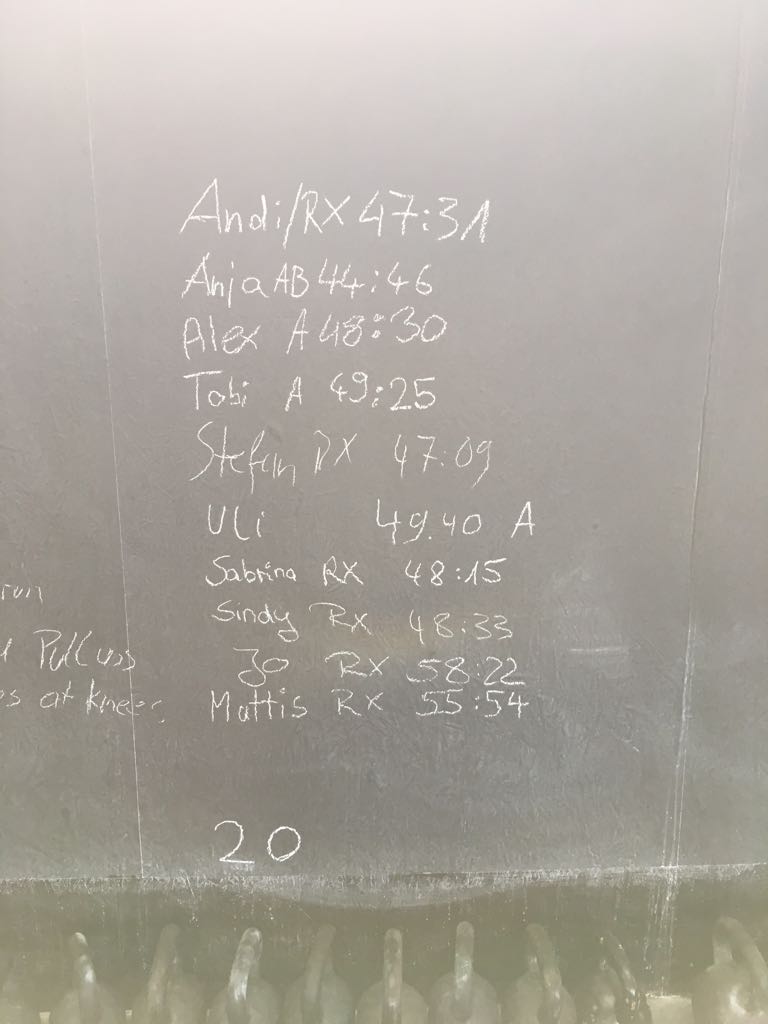 Andi/RX 47:31
Anja AB 44:46
Alex A 48:30
Tobi A 49:25
Stefan RX 47:09
Uli 49.40 A
Sabrina RX 48:15
Sindy RX 48:33
Jo RX 58:22
Mattis RX 55:54
run
Pull ups
at knees
20